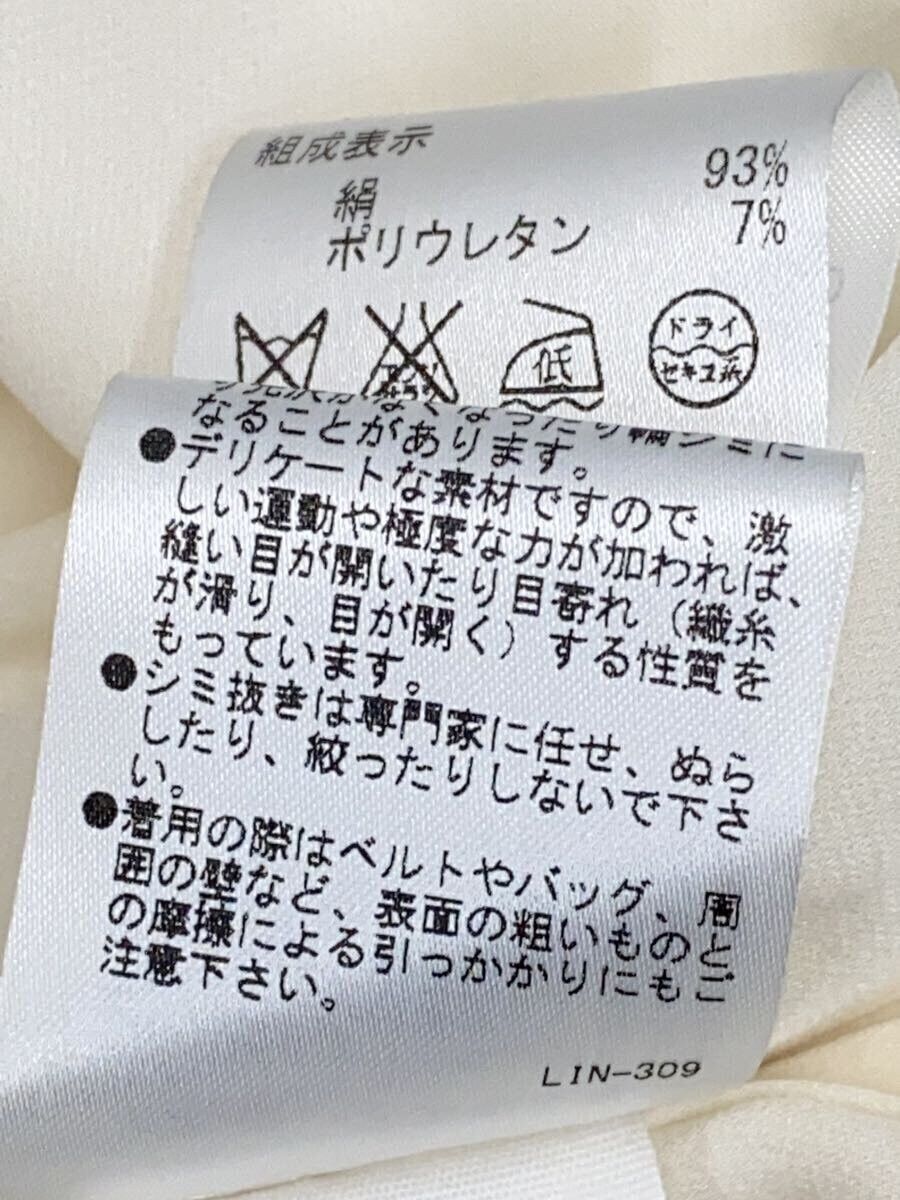 組成表示
絹 93%
ポリウレタン 7%
低
ドライ
セキユ系
なることがあります。
●デリケートな素材ですので、激
しい運動や極度な力が加われば、
縫い目が開いたり目寄れ（織糸
が滑り、目が開く）する性質を
もっています。
●シミ抜きは専門家に任せ、ぬら
したり、絞ったりしないで下さ
い。
●着用の際はベルトやバッグ、周
囲の壁など、表面の粗いものと
の摩擦による引っかかりにもご
注意下さい。
LIN-309